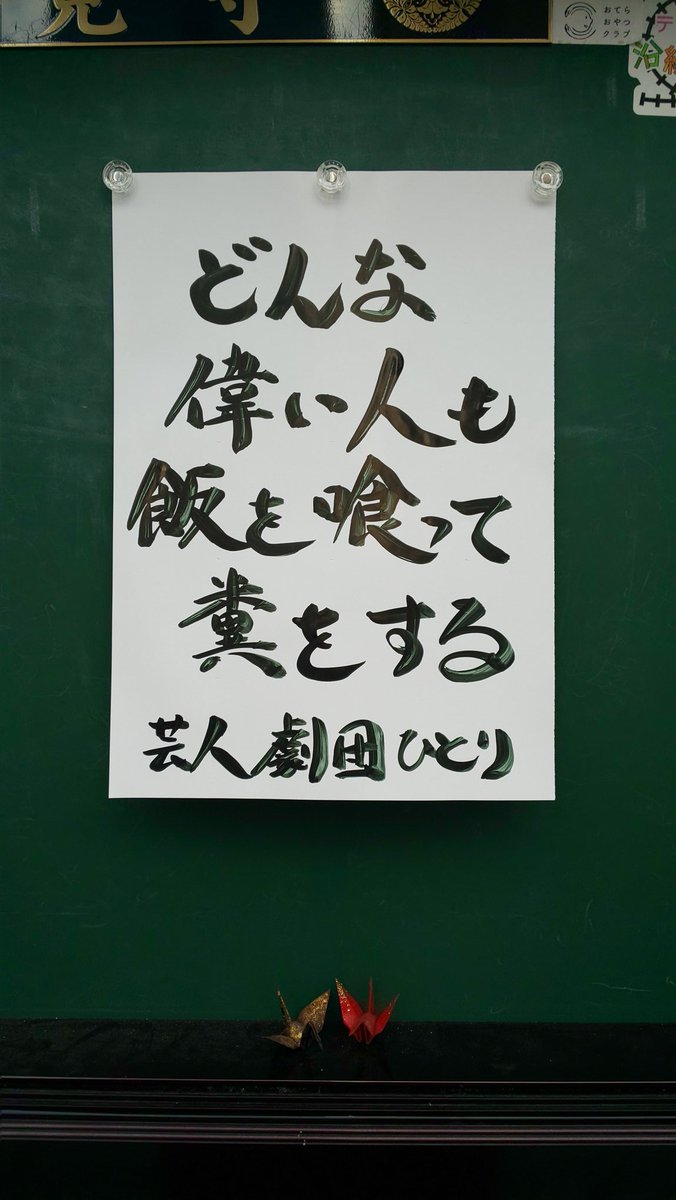 寺
おてら
おやつ
クラブ
どんな
偉い人も
飯を喰って
糞をする
芸人劇団ひとり